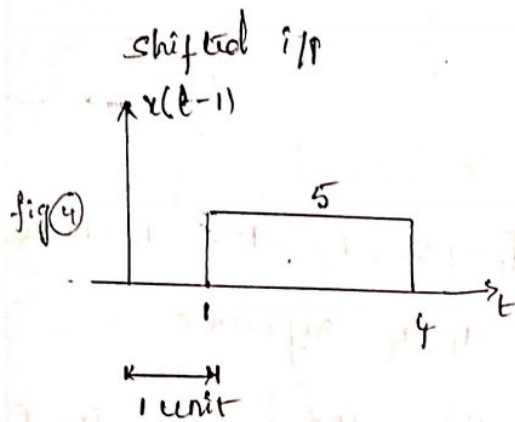 shifted i/p
x(t-1)
fig ④
5
1
4
t
1 unit